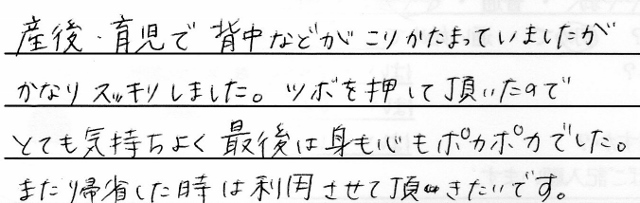 産後・育児で背中などがこりかたまっていましたが
かなりスッキリしました。ツボを押して頂いたので
とても気持ちよく最後は身も心もポカポカでした。
また帰省した時は利用させて頂きたいです。